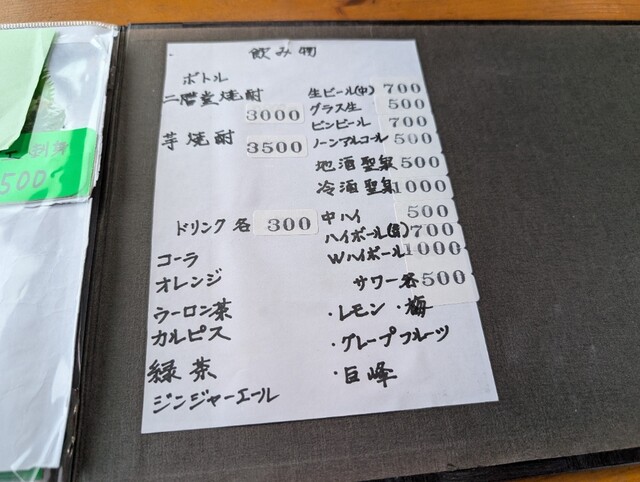 飲み物
ボトル
二階堂焼酎
3000
芋焼酎
3500
ドリンク各 300
コーラ
オレンジ
ウーロン茶
カルピス
緑茶
ジンジャーエール
生ビール(中) 700
グラス生 500
ビンビール 700
ノーンアルコール 500
地酒聖泉 500
冷酒聖泉 1000
中ハイ 500
ハイボール(角) 700
Wハイボール 1000
サワー各 500
・レモン ・梅
・グレープフルーツ
・巨峰
刺身
500